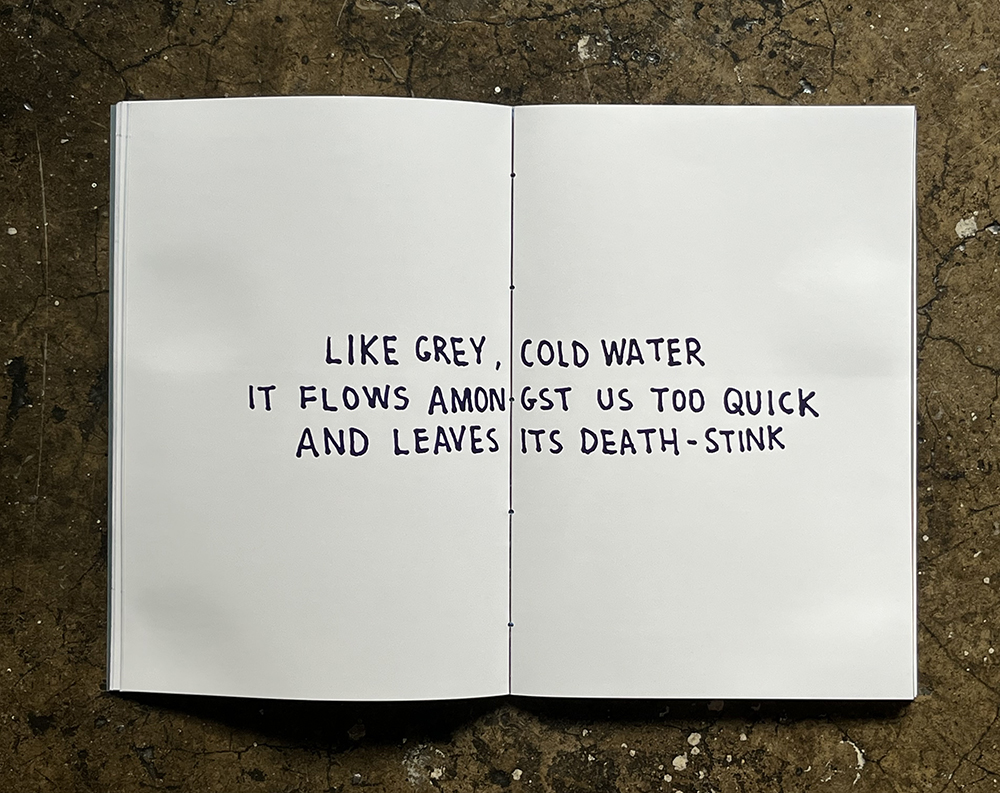 LIKE GREY, COLD WATER
IT FLOWS AMONGST US TOO QUICK
AND LEAVES ITS DEATH-STINK